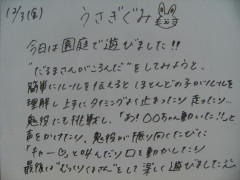 12/3(金)
うさぎぐみ
今日は園庭で遊びました!!
"だるまさんがころんだ"をしてみようと、
簡単にルールを伝えるとほとんどの子がルールを
理解し上手にタイミングよく止まったり走ったり…
鬼役にも挑戦し、「あ!〇〇ちゃん動いた!!」と
声をかけたり、鬼役が振り向くたびに
「キャー♡」と叫んだり口を動かしたり
最後は"むっくりくまさん"をして楽しく遊びました